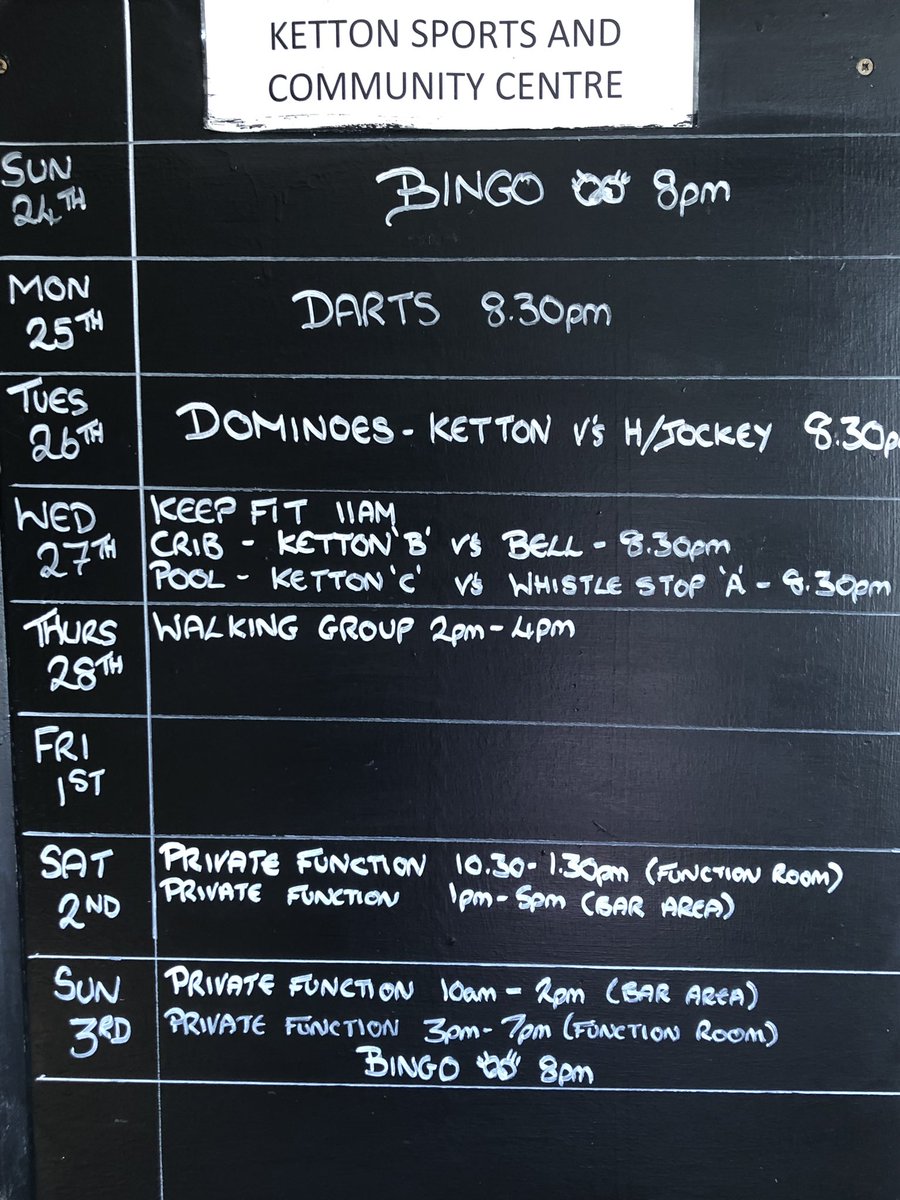 KETTON SPORTS AND
COMMUNITY CENTRE
SUN
24TH
BINGO 8pm
MON
25TH
DARTS 8.30pm
TUES
26TH
DOMINOES - KETTON V's H/JOCKEY 8.30p
WED
27TH
KEEP FIT 11AM
CRIB - KETTON 'B' V's BELL - 8.30pm
POOL - KETTON 'C' V's WHISTLE STOP 'A' - 8.30pm
THURS
28TH
WALKING GROUP 2pm - 4pm
FRI
1ST
SAT
2ND
PRIVATE FUNCTION 10.30 - 1.30pm (FUNCTION ROOM)
PRIVATE FUNCTION 1pm - 5pm (BAR AREA)
SUN
3RD
PRIVATE FUNCTION 10am - 2pm (BAR AREA)
PRIVATE FUNCTION 3pm - 7pm (FUNCTION ROOM)
BINGO 8pm